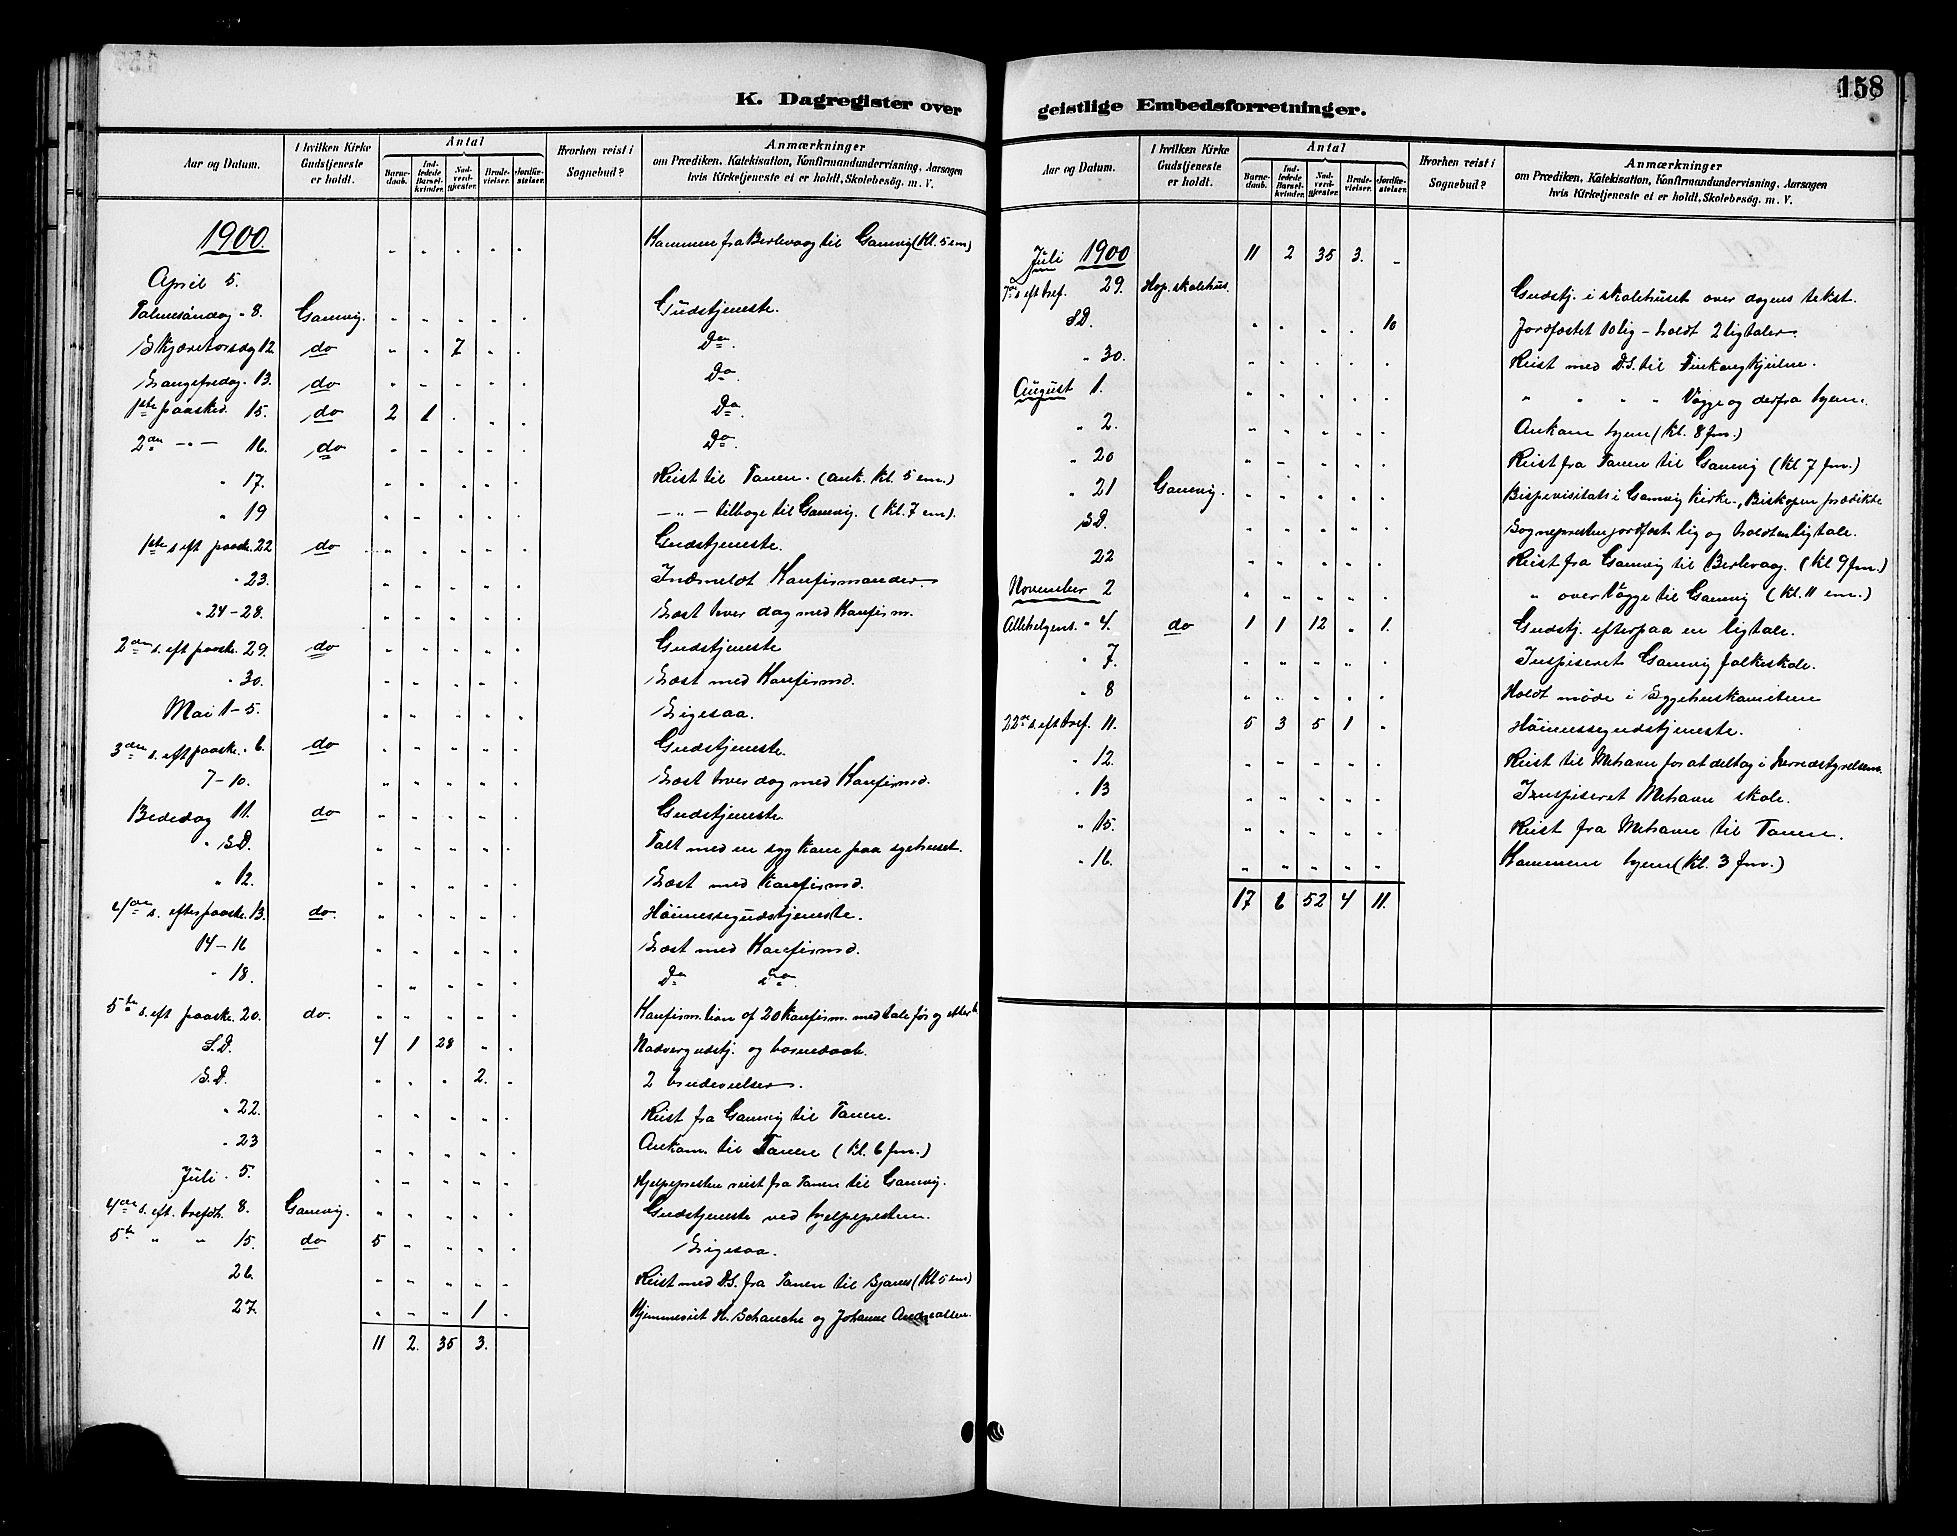 158
K. Dagregister over
Aar og Datum.
I hvilken Kirke Gudstjeneste er holdt.
Antal
Barnedaab.
Indledede Barselkvinder.
Nadverdgjester.
Brudevielser.
Jordfæstelser.
Hvorhen reist i Sognebud?
Anmærkninger
om Prædiken, Katekisation, Konfirmandundervisning, Aarsagen
hvis Kirketjeneste ei er holdt, Skolebesøg. m. V.
1900. Kommen fra Berlevaag til Gamvig (Kl. 5 em)
April 5.
Palmesöndag " 8. Gamvig. Gudstjeneste.
Skjæretorsdg 12. do 7 Do.
Langefredag. 13. do Do.
1ste paasked. 15. do 2 1 Do.
2den — " — 16. do Do.
" 17. Reist til Tanen. (ank. Kl. 5 em.)
" 19 — " — tilbage til Gamvig. (Kl. 7 em).
1ste s. eft paaske. 22 do Gudstjeneste.
" 23. Indmeldt Konfirmander
" 24-28. Læst hver dag med Konfirm.
2den s. eft paaske. 29. do Gudstjeneste
" 30. Læst med Konfirmd.
Mai 1-5. Ligesaa.
3den s. eft paaske. " 6. do Gudstjeneste.
7-10. Læst hver dag med Konfirmd.
Bededag 11. do Gudstjeneste.
" S.D. Talt med en syg kone paa sygehuset.
" 12. Læst med Konfirmd.
4de s. efter paaske. 13. do. Höimessegudstjeneste.
14-16 Læst med Konfirmd.
" 18. Do Do
5te s. eft paaske. 20. do. Konfirm.tion af 20 Konfirm. med tale før og efter
S.D. 4 1 28 Nadvergudstj. og barnedaab.
S.D. 2. 2 brudevielser.
" 22. Reist fra Gamvig til Tanen.
" 23 Ankom. til Tanen (Kl. 6 fm.)
Juli. 5. Hjelpepresten reist fra Tanen til Gamvig.
4de s. eft. trefdh. 8. Gamvig. Gudstjeneste ved hjelpepresten.
5te " " 15. do 5 Ligesaa.
26. Reist med D.S. fra Tanen til (Kl 5 em)
27. 1 Hjemmeviet H. Schanche og Johanne
11 2. 35 3.
geistlige Embedsforretninger.
Aar og Datum.
I hvilken Kirke Gudstjeneste er holdt.
Antal
Barnedaab.
Indledede Barselkvinder.
Nadverdgjester.
Brudevielser.
Jordfæstelser.
Hvorhen reist i Sognebud?
Anmærkninger
om Prædiken, Katekisation, Konfirmandundervisning, Aarsagen
hvis Kirketjeneste ei er holdt, Skolebesøg. m. V.
Juli 1900 11 2 35 3.
7de s. eft tref. 29. Hop. skolehus. Gudstj. i skolehuset over dagens tekst.
S.D. 10 Jordfæstet 10 lig - holdt 2 ligtaler.
" 30. Reist med D.S. til Finkongkjeilen.
August 1. " " " " Vagge og derfra hjem.
" 2. Ankom hjem (Kl. 8 fm.)
" 20 Reist fra Tanen til Gamvig (Kl 7 fm.)
" 21 Gamvig. Bispevisitats i Gamvig kirke., Biskopen prædikte
S.D. Sognepresten jordfest lig og holdt en ligtale.
22 Reist fra Gamvig til Berlevaag. (Kl 9 fm.)
November 2 " over Vagge til Gamvig (Kl. 11 em.)
Allehelgens. " 4. do 1 1 12 1. Gudstj. efterpaa en ligtale.
" 7. Inspiseret Gamvig folkeskole.
" 8 Holdt möde i Sygehuskomiteen
22de s. eft tref. 11. 5 3 5 1 Höimessegudstjeneste.
" 12. Reist til Mehavn for at deltag i herredstyrelsen.
" 13 Inspiseret Mehavn skole.
" 15. Reist fra Mehavn til Tanen.
" 16. Kommen hjem (Kl. 3 fm.)
17 6 52 4 11.